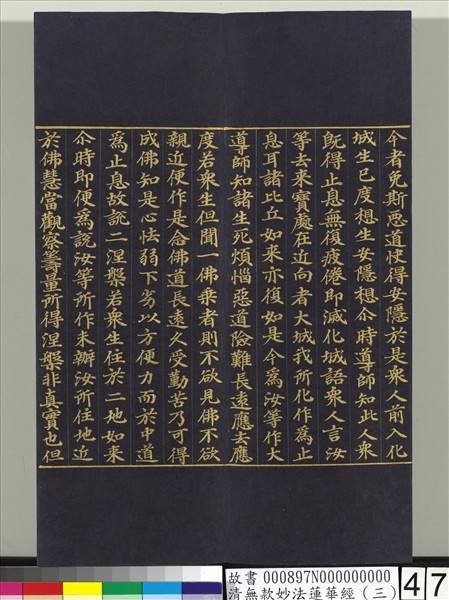 今者免斯惡道快得安隱於是衆人前入化
城生已度想生安隱想尒時導師知此人衆
旣得止息無復疲倦即滅化城語衆人言汝
等去來寶處在近向者大城我所化作爲止
息耳諸比丘如來亦復如是今爲汝等作大
導師知諸生死煩惱惡道險難長遠應去應
度若衆生但聞一佛乘者則不欲見佛不欲
親近便作是念佛道長遠久受勤苦乃可得
成佛知是心怯弱下劣以方便力而於中道
爲止息故說二涅槃若衆生住於二地如來
尒時即便爲說汝等所作未辦汝所住地近
於佛慧當觀察籌量所得涅槃非真實也但
故書 000897N000000000
清無款妙法蓮華經（三）
47